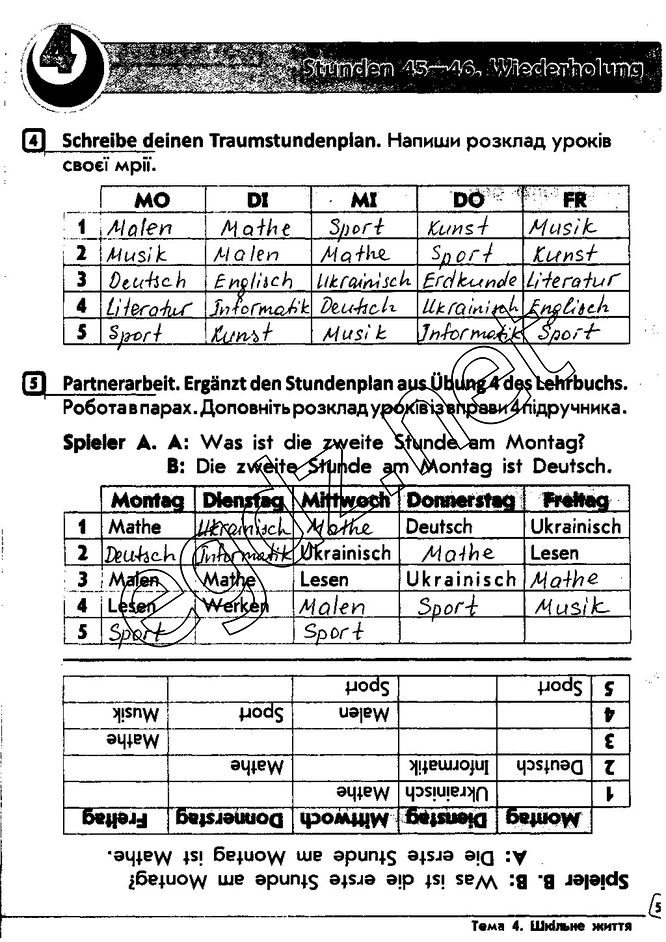 4
Stunden 45–46. Wiederholung
4 Schreibe deinen Traumstundenplan. Напиши розклад уроків
своєї мрії.
MO DI MI DO FR
1 Malen Mathe Sport Kunst Musik
2 Musik Malen Mathe Sport Kunst
3 Deutsch Englisch Ukrainisch Erdkunde Literatur
4 Literatur Informatik Deutsch Ukrainisch Englisch
5 Sport Kunst Musik Informatik Sport
5 Partnerarbeit. Ergänzt den Stundenplan aus Übung 4 des Lehrbuchs.
Робота в парах. Доповніть розклад уроків із вправи 4 підручника.
Spieler A. A: Was ist die zweite Stunde am Montag?
B: Die zweite Stunde am Montag ist Deutsch.
Montag Dienstag Mittwoch Donnerstag Freitag
1 Mathe Ukrainisch Mathe Deutsch Ukrainisch
2 Deutsch Informatik Ukrainisch Mathe Lesen
3 Malen Mathe Lesen Ukrainisch Mathe
4 Lesen Werken Malen Sport Musik
5 Sport Sport
egdz.net
Spieler B. B: Was ist die erste Stunde am Montag?
A: Die erste Stunde am Montag ist Mathe.
Montag Dienstag Mittwoch Donnerstag Freitag
1 Ukrainisch Mathe
2 Deutsch Informatik Mathe
3 Mathe
4 Malen Sport Musik
5 Sport Sport
5
Тема 4. Шкільне життя